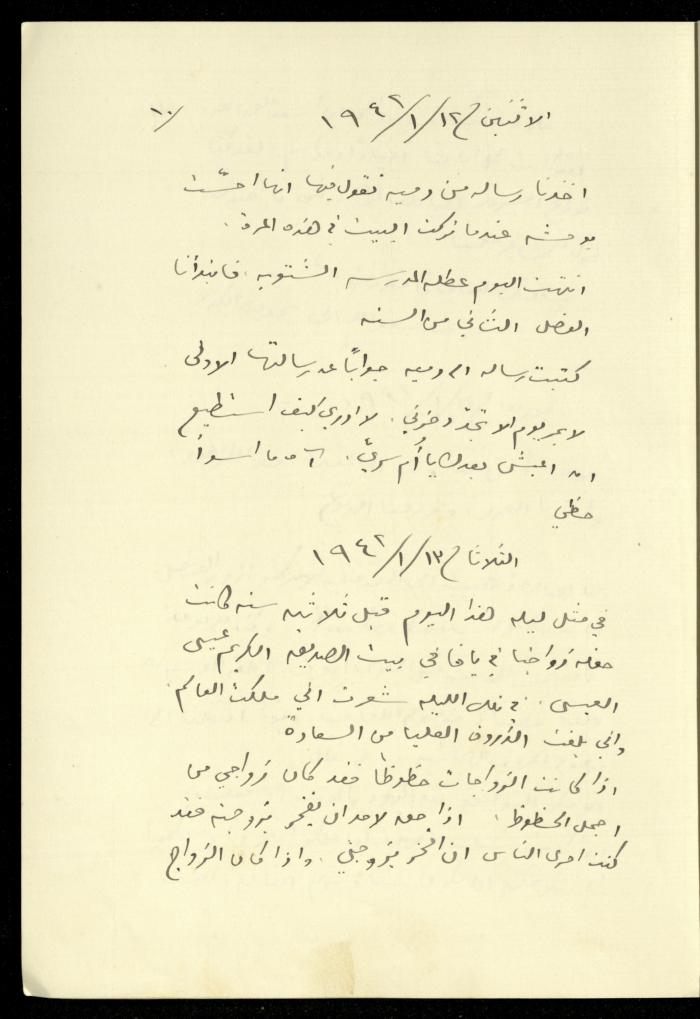 الاثنين ١٢/١/١٩٤٢
١٠/
اخذنا رساله من دميه تقول فيها انها احسّت
بوحشه عندما تركت البيت في هذه المرة.
انتهت اليوم عطله المدرسه الشتويه، فابتدأنا
الفصل الثاني من السنه
كتبت رساله الى دميه جواباً على رسالتها الاولى
لا يمر يوم الا تجدّد حزني. لا ادري كيف استطيع
ان اعيش بعدك يا أم سريّ. آه ما اسوأ
حظي
الثلاثا ١٣/١/١٩٤٢
في مثل ليله هذا اليوم قبل ثلاثين سنه كانت
حفله زواجنا في يافا في بيت الصديق الكريم عيسى
العيسى. في تلك الليله شعرت اني ملكت العالم.
واني بلغت الذروة العليا من السعادة
اذا كانت الزواجات حظوظاً فقد كان زواجي من
اجمل الحظوظ. اذا حق لاحد ان يفخر بزوجته فقد
كنت احرى الناس ان افخر بزوجتي. واذا كان الزواج